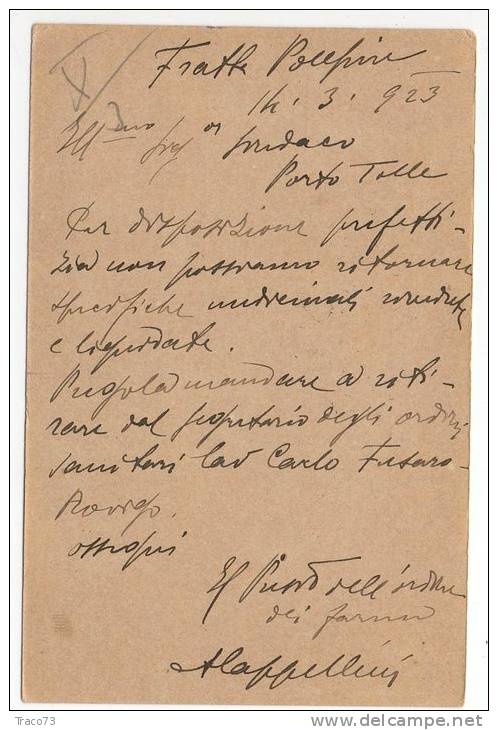 Fratta Polesine
14. 3. 923
Ill.mo Sig.or Sindaco
Porto Tolle
Per disposizione prefetti-
zia non possiamo ritornare
specifiche medicinali vendute
e liquidate.
Pregola mandare a riti-
rare dal segretario degli ordini
sanitari Cav Carlo Fusaro -
Rovigo.
Ossequi
Il Presid dell'ordine
dei farma
Traco73
delcampe.net